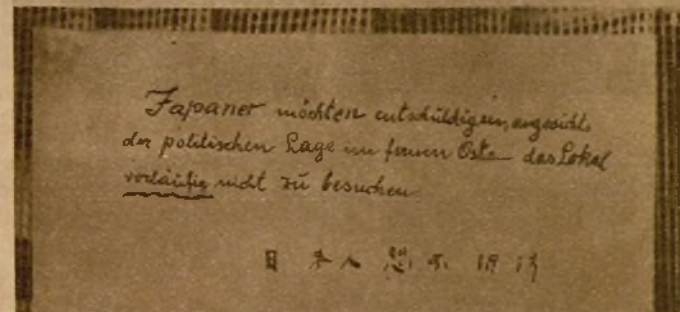 Japaner möchten entschuldigen, angesichts
der politischen Lage im fernen Osten das Lokal
vorläufig nicht zu besuchen
日本人恕不招待